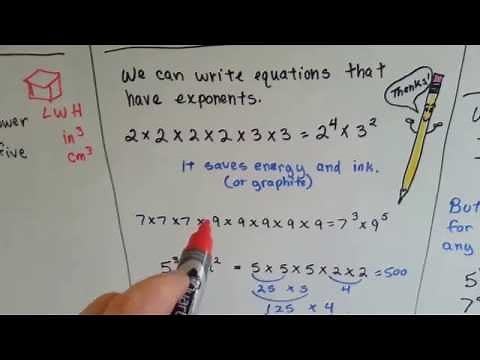 LWH
in³
cm³
We can write equations that
have exponents.
Thanks!
2 × 2 × 2 × 2 × 3 × 3 = 2⁴ × 3²
It saves energy and ink.
(or graphite)
7 × 7 × 7 × 9 × 9 × 9 × 9 × 9 = 7³ × 9⁵
5³ ² = 5 × 5 × 5 × 2 × 2 = 500
25 × 5 4
125 × 4
for
any